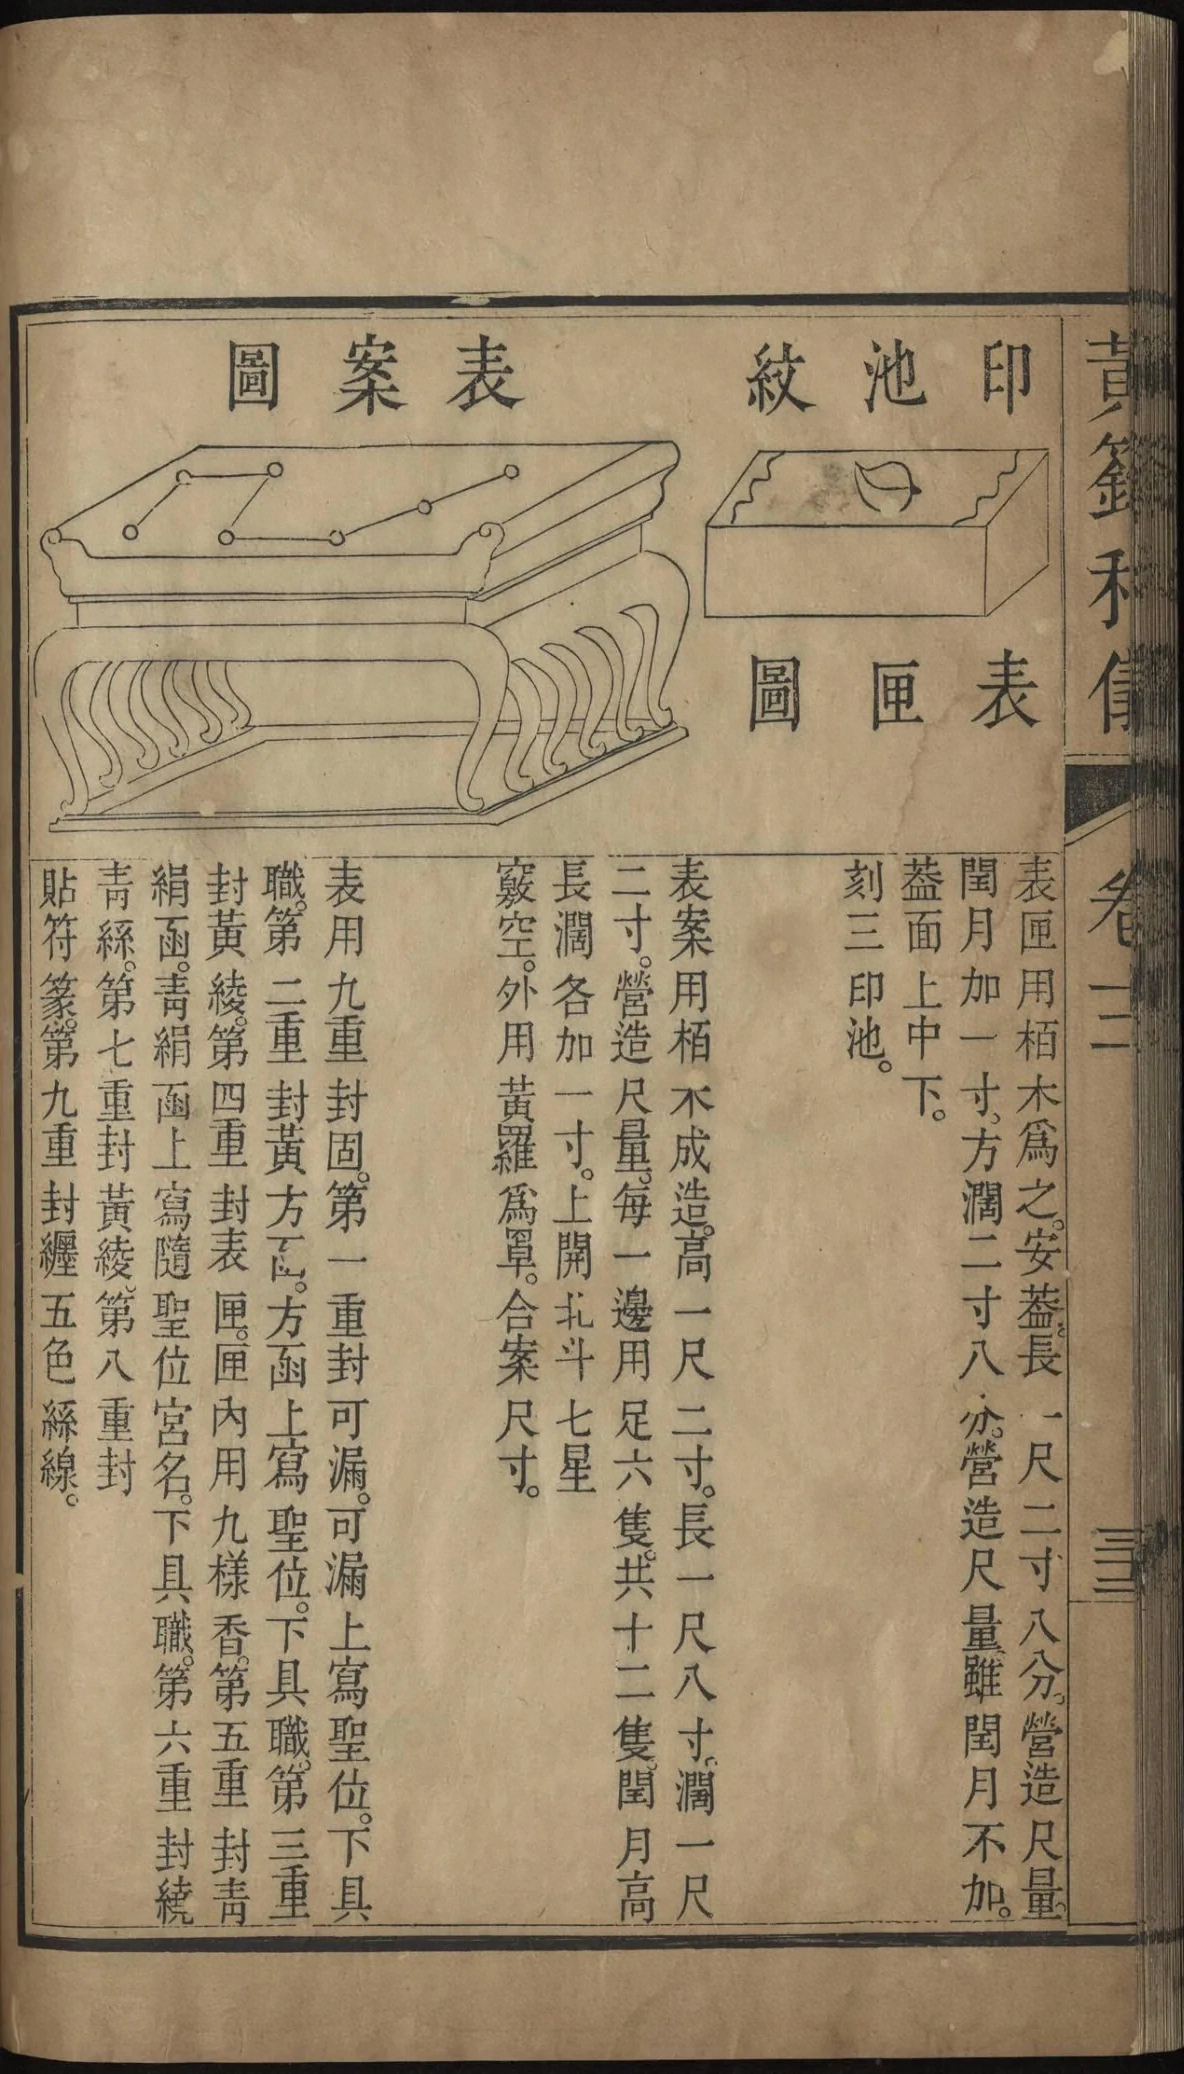 黃籙科儀
卷三
三三
印池紋
表匣圖
表案圖
表匣用栢木爲之。安葢。長一尺二寸八分。營造尺量。
閏月加一寸。方濶二寸八分。營造尺量。雖閏月不加。
葢面上中下。
刻三印池。
表案用栢木成造。高一尺二寸。長一尺八寸。濶一尺
二寸。營造尺量。每一邊用足六隻。共十二隻。閏月高
長濶各加一寸。上開北斗七星
竅空。外用黃羅爲罩。合案尺寸。
表用九重封固。第一重封可漏。可漏上寫聖位。下具
職。第二重封黃方函。方函上寫聖位。下具職。第三重
封黃綾。第四重封表匣。匣內用九樣香。第五重封靑
絹函。靑絹函上寫隨聖位宮名。下具職。第六重封繞
靑絲。第七重封黃綾。第八重封
貼符篆。第九重封纒五色絲線。